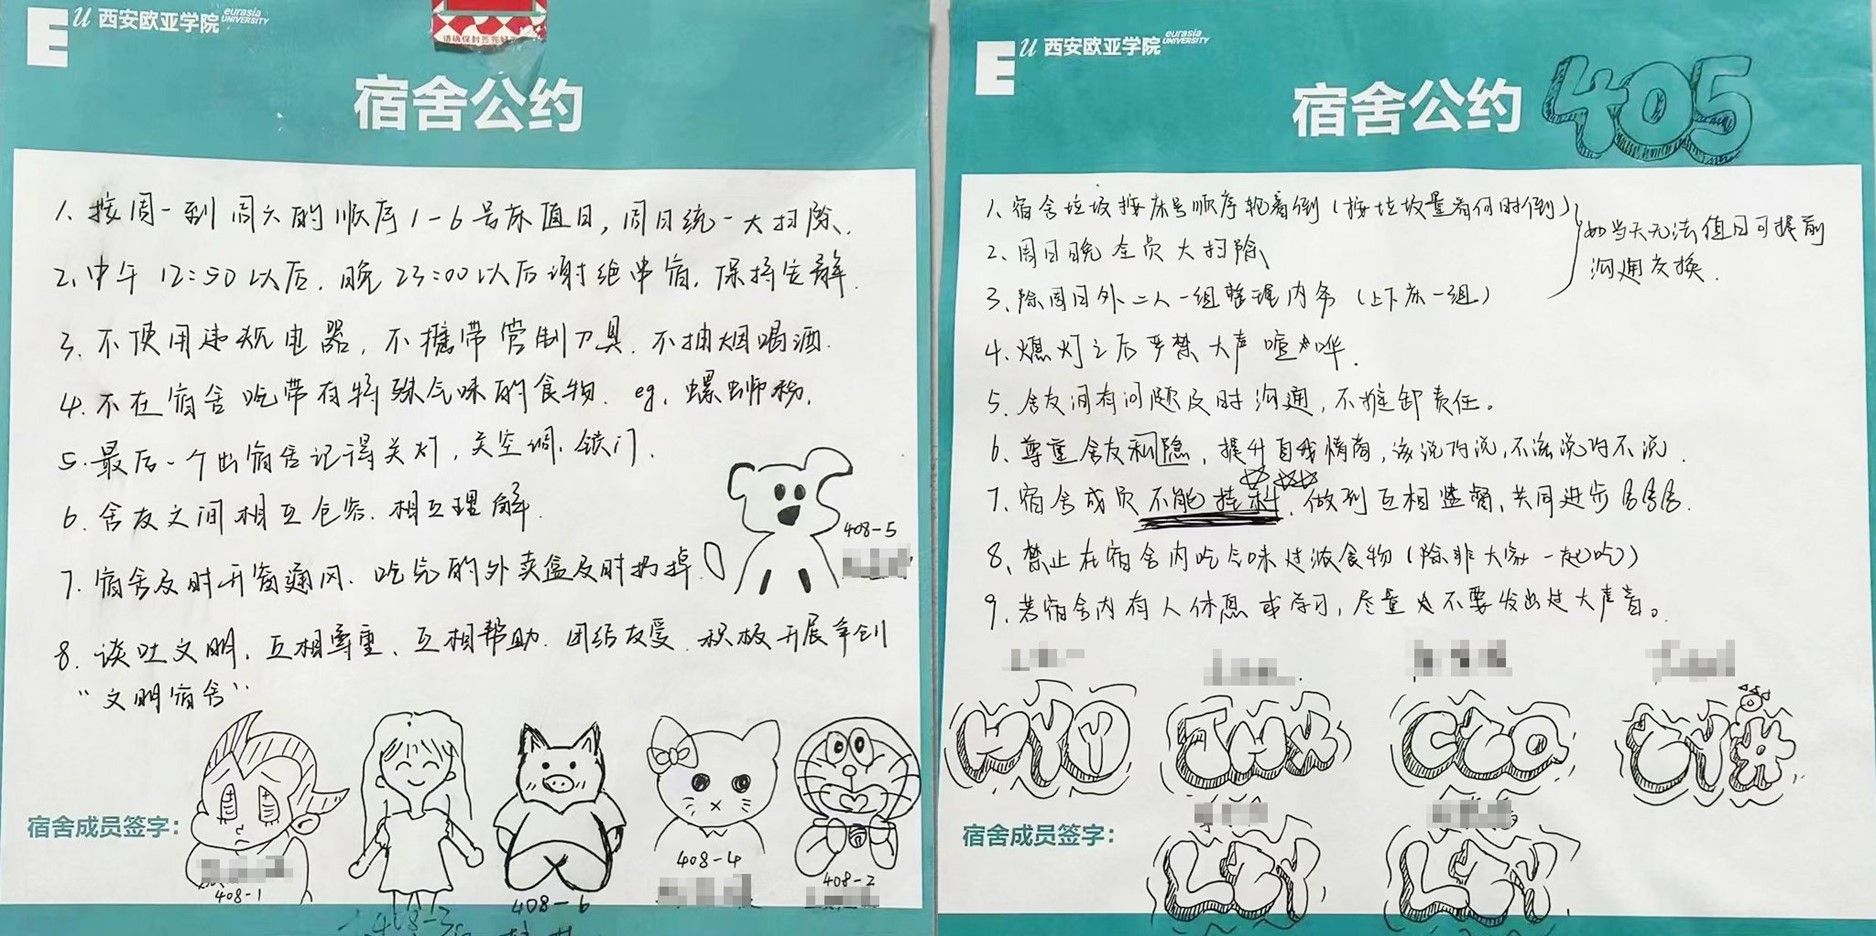 西安欧亚学院 eurasia UNIVERSITY
请确保封签完好
宿舍公约
1、按周一到周六的顺序1-6号床值日,周日统一大扫除.
2、中午12:50以后,晚23:00以后谢绝串宿,保持安静.
3、不使用违规电器,不携带管制刀具.不抽烟喝酒.
4、不在宿舍吃带有特殊气味的食物.eg,螺蛳粉.
5.最后一个出宿舍记得关灯,关空调、锁门.
6、舍友之间相互包容、相互理解.
7、宿舍及时开窗通风、吃完的外卖盒及时扔掉.
8、谈吐文明、互相尊重、互相帮助.团结友爱.积极开展争创
“文明宿舍”.
408-5
宿舍成员签字:
408-1
408-3
408-6
408-4
408-2
西安欧亚学院 eurasia UNIVERSITY
宿舍公约 405
1、宿舍垃圾按床号顺序轮着倒(按垃圾量看何时倒)
2、周日晚全员大扫除
3、除周日外二人一组整理内务(上下床一组)
如当天无法值日可提前
沟通交换.
4、熄灯之后严禁大声喧哗.
5、舍友间有问题及时沟通,不推卸责任。
6、尊重舍友私隐,提升自我情商,该说的说,不该说的不说.
7、宿舍成员不能挂科,做到互相监督,共同进步
8、禁止在宿舍内吃气味过浓食物(除非大家一起吃)
9、若宿舍内有人休息或学习,尽量不要发出过大声音。
HYY
JMX
CZQ
宿舍成员签字:
LZY